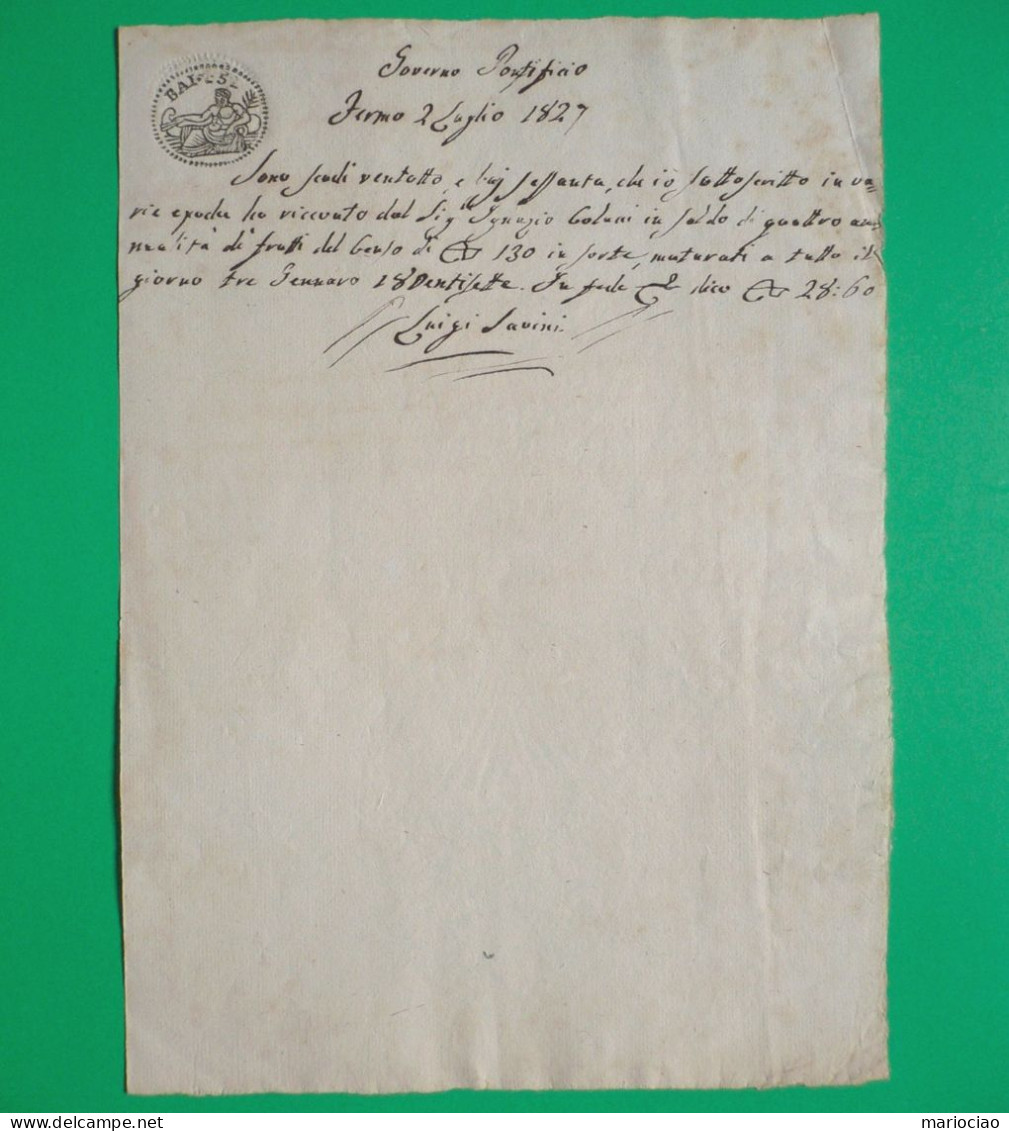 BAI·
Governo Pontificio
Fermo 2 Luglio 1827
Sono scudi ventotto, e baj sessanta, che io sottoscritto in va-
rie epoche ho ricevuto dal Sig.r Ignazio in saldo di quattro an-
nualità di frutti del Censo di 130 in sorte, maturati a tutto il
giorno tre Gennaro 18ventisette. In fede dico 28:60
Luigi Savini.
www.delcampe.net
mariociao